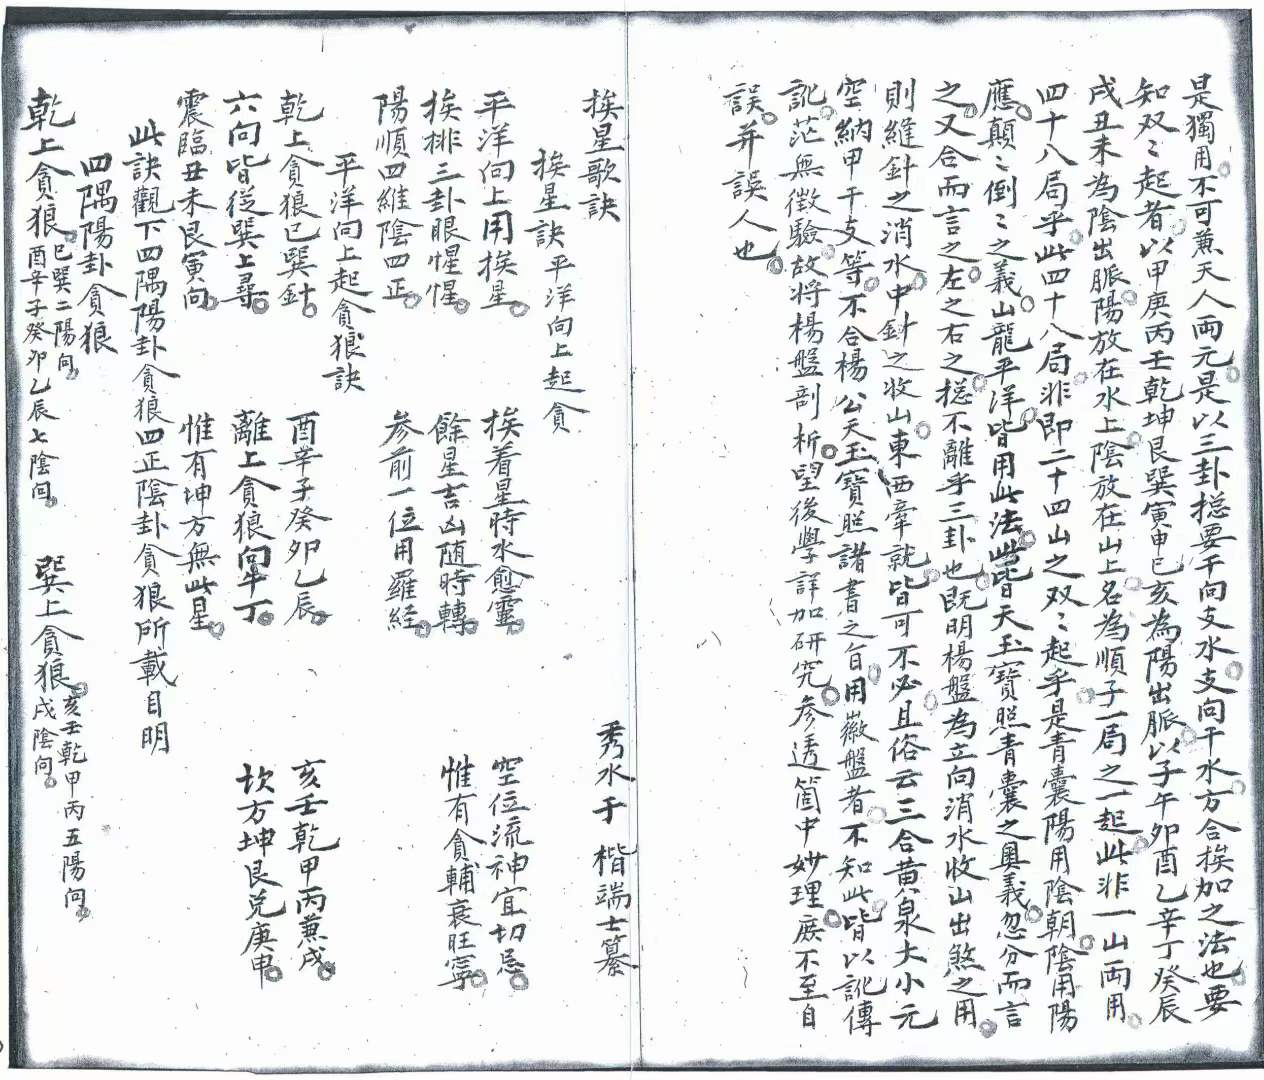 是獨用不可兼天人兩元是以三卦捴要干向支水支向干水方合挨加之法也要
知双〻起者以甲庚丙壬乾坤艮巽寅申巳亥為陽出脈以子午卯酉乙辛丁癸辰
戌丑未為陰出脈陽放在水上陰放在山上名為順子一局之一起此非一山兩用
四十八局乎此四十八局非即二十四山之双〻起乎是青囊陽用陰朝陰用陽
應顛〻倒〻之義山龍平洋皆用此法此皆天玉寶照青囊之奧義忽分而言
之又合而言之左之右之捴不離乎三卦也既明楊盤為立向消水收山出煞之用
則縫針之消水中針之收山東西辜就皆可不必且俗云三合黄泉大小元
空納甲干支等不合楊公天玉寶照諸書之旨用嶶盤者不知此皆以訛傳
訛茫無徵驗故将楊盤剖析望後學詳加研究参透箇中妙理庻不至自
誤并誤人也
挨星歌訣 秀水于楷端士纂
挨星訣平洋向上起貪
平洋向上用挨星 挨着星時水愈靈 空位流神宜切忌
挨排三卦眼惺惺 餘星吉凶随時轉 惟有貪輔衰旺寧
陽順四維陰四正 参前一位用羅經
平洋向上起貪狼訣
乾上貪狼巳巽針 酉辛子癸卯乙辰 亥壬乾甲丙兼戌
六向皆從巽上尋 離上貪狼向午丁 坎方坤艮兌庚申
震臨丑未艮寅向 惟有坤方無此星
此訣觀下四隅陽卦貪狼四正陰卦貪狼所載自明
四隅陽卦貪狼
乾上貪狼 巳巽二陽向 酉辛子癸卯乙辰七陰向 巽上貪狼 亥壬乾甲丙五陽向 戌陰向